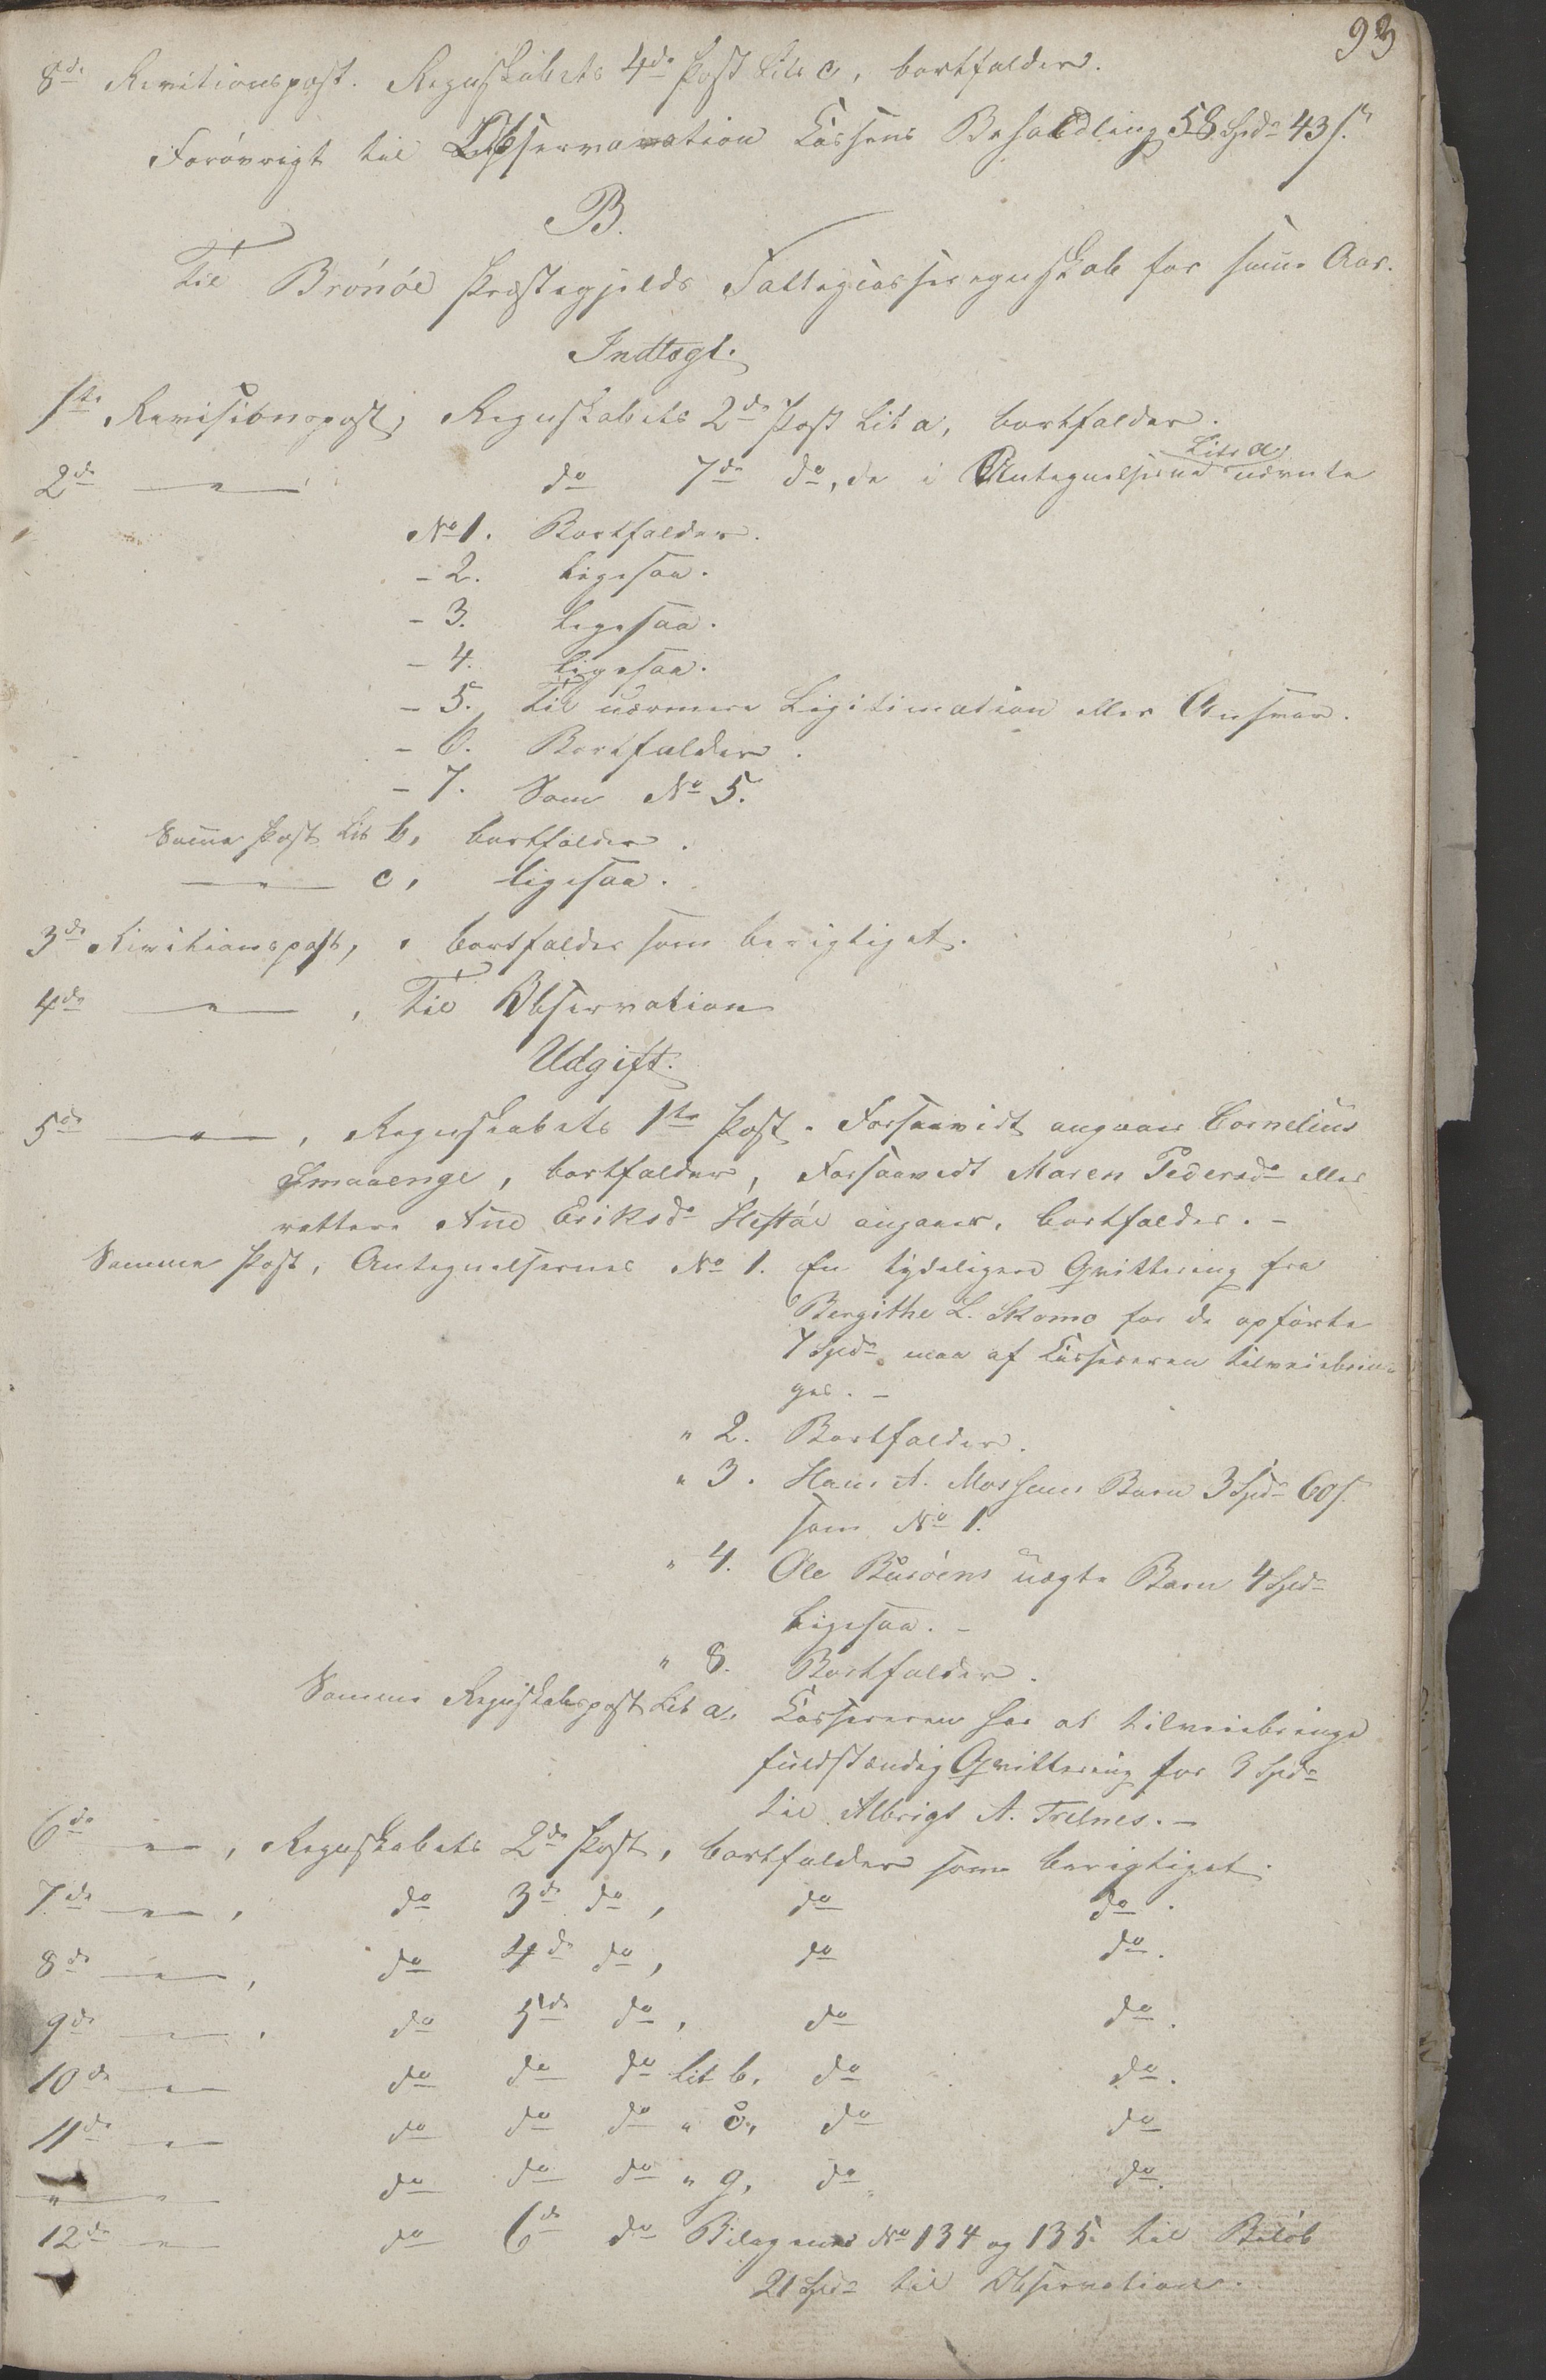 93
8de Revitionspost. Regnskabets 4de Post Litr c, bortfalder.
Forøvrigt til Observation Kassens Behandling 58 Spd 43 s.
B.
Til Brønøe Præstegjelds Fattigcasseregnskab for samme Aar.
Indtægt.
1ste Revisionspost, Regnskabets 2de Post Lit a, bortfalder.
Litr a
2de — " — do 7de do, de i Antegnelserne nævnte
No 1. Bortfalder.
- 2. Ligesaa.
- 3. Ligesaa.
- 4. Ligesaa.
- 5. Til nærmere Legitimation eller Ansvar.
- 6. Bortfalder.
- 7. Som No 5.
Samme Post Lit b, bortfalder.
— " — c, ligesaa.
3de Revitionspost, bortfalder som berigtiget.
4de — " — , Til Observation
Udgift.
5de — " — , Regnskabets 1ste Post. Forsaavidt angaaer Cornelius
Smaaenge, bortfalder, Forsaavidt Maren Pedersdr eller
rettere Ane Eriksdr Hestøe angaaer, bortfalder. -
Samme Post, Antegnelsernes No 1. En tydeligere Qvittering fra
Bergithe L. Skomo for de opførte
7 Spdr maa af Kassereren tilveiebrin-
ges. -
" 2. Bortfalder.
" 3. Hans A. Mosheims Barn 3 Spdr 60 s.
som No 1.
" 4. Ole Buröens uægte Barn 4 Spdr
Ligesaa. -
" 8. Bortfalder.
Samme Regnskabspost Lit a. Kassereren har at tilveiebringe
fuldstændig Qvittering for 3 Spdr
til Albrigt A. Trelnes. -
6de — " — , Regnskabets 2de Post, bortfalder som berigtiget.
7de — " — , do 3de do, do do.
8de — " — , do 4de do, do do.
9de — " — , do 5te do, do do.
10de — " — do do do Lit b, do do.
11de — " — do do do " c, do do
" — " — do do do " g, do do.
12de — " — do 6de do Bilagene No 134 og 135. til Beløb
21 Spdr til Observation.